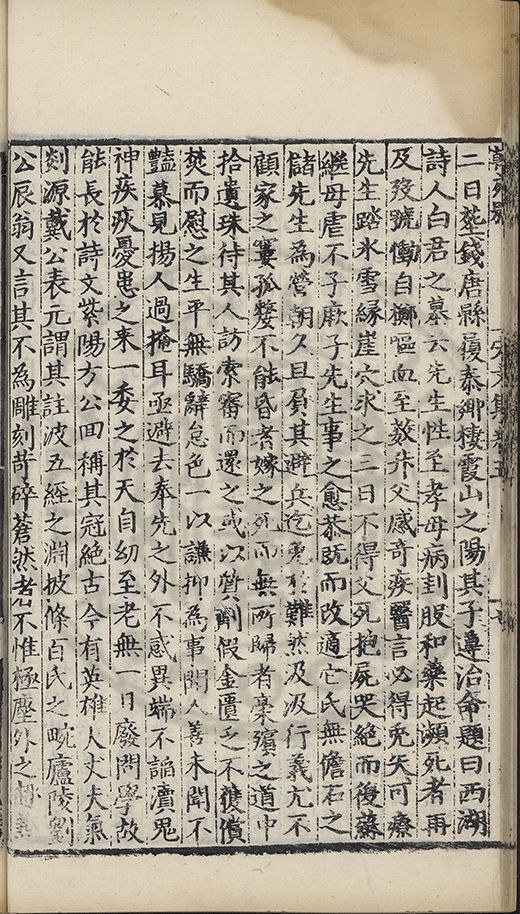 二日塟錢唐縣履泰鄉棲霞山之陽其子遵治命題曰西湖
詩人白君之墓云先生性至孝母病刲股和藥起瀕死者再
及歿號慟自擲嘔血至數升父感奇疾醫言必得兎矢可療
先生踏氷雪緣崖穴求之三日不得父死抱屍哭絕而復蘇
繼母虐不子厥子先生事之愈恭既而改適它氏無儋石之
儲先生為營朝夕且負其避兵迄免於難然汲汲行義尤不
顧家之窶孤嫠不能昏者嫁之死而無所歸者槀殯之道中
拾遺珠待其人訪索審而還之或以質劑假金匱乏不能償
焚而慰之生平無驕辭怠色一以謙抑為事聞人善未聞不
豔慕見揚人過掩耳亟避去奉先之外不惑異端不諂瀆鬼
神疾疢憂患之来一委之於天自幼至老無一日廢問學故
能長於詩文紫陽方公回稱其冠絶古今有英雄人丈夫氣
剡源戴公表元謂其註波五經之淵披條百氏之畹廬陵劉
公辰翁又言其不為雕刻苛碎蒼然者不惟極塵外之